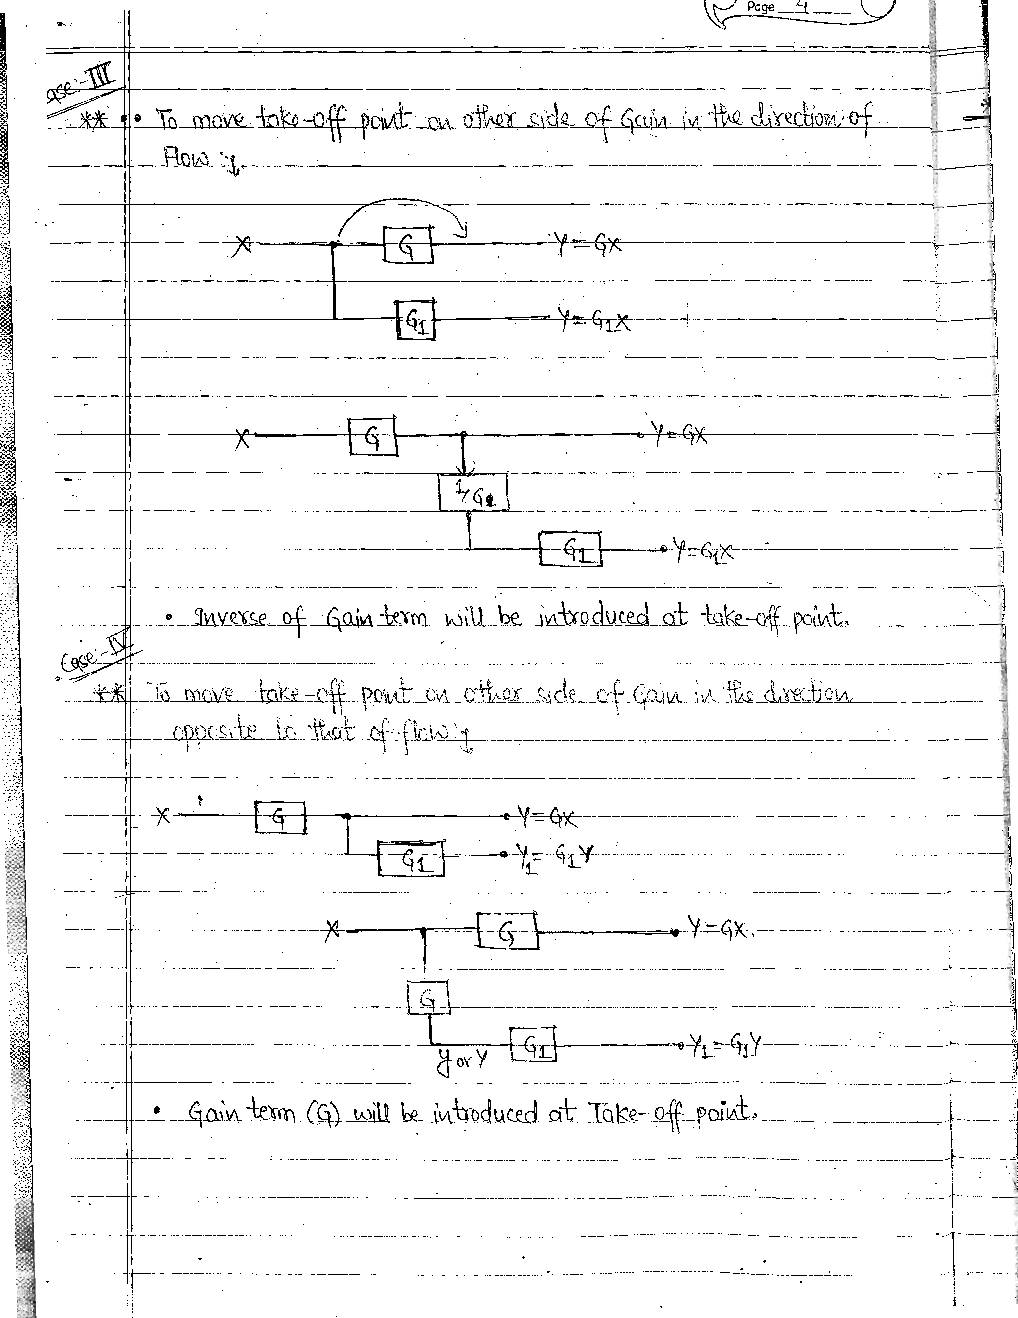 Page 4
ase:-III
** • • To move take-off point on other side of Gain in the direction of
Flow :-
X G Y = GX
G1 Y = G1X
X G Y = GX
1/G
G1 Y = G1X
• Inverse of Gain term will be introduced at take-off point.
Case:-IV
** To move take-off point on other side of Gain in the direction
opposite to that of flow :-
X G Y = GX
G1 Y1 = G1Y
X G Y = GX.
G
y or Y G1 Y1 = G1Y
• Gain term (G) will be introduced at Take-off point.